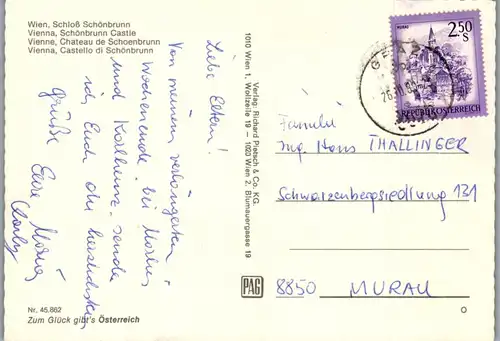 Wien, Schloß Schönbrunn
Vienna, Schönbrunn Castle
Vienne, Chateau de Schoenbrunn
Vienna, Castello di Schönbrunn
Liebe Eltern!
Von meinem verlängerten
Wochenende bei
und sende
ich Euch die herzlichsten
Grüße Eure
Nr. 45.882
Zum Glück gibt's Österreich
Verlag: Richard Pietsch & Co. KG.
1010 Wien 1, Wollzeile 19 – 1020 Wien 2, Blumauergasse 19
PAG
MURAU
2.50
S
REPUBLIK ÖSTERREICH
Familie
Ing. Hans THALLINGER
Schwarzenbergsiedlung 131
8850 MURAU